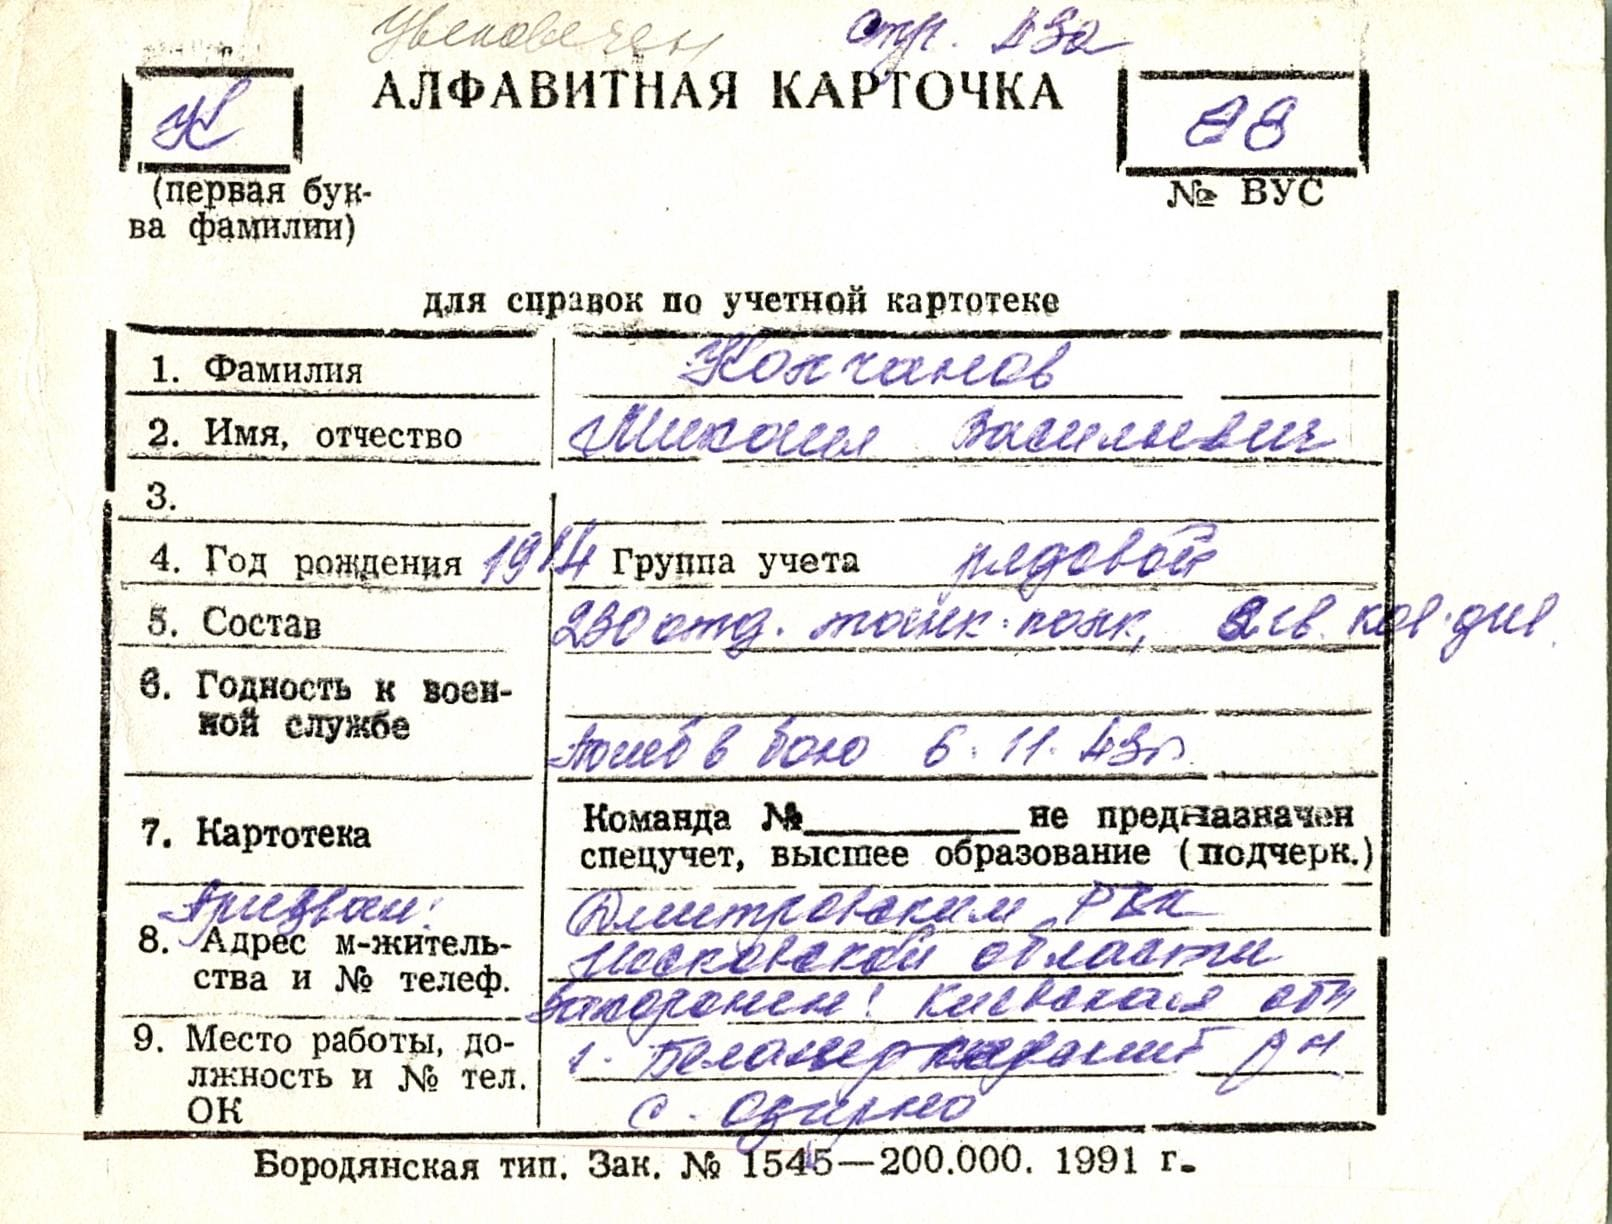 Увековечен стр. 132
К АЛФАВИТНАЯ КАРТОЧКА 88
(первая бук-
ва фамилии)
№ ВУС
для справок по учетной картотеке
1. Фамилия Колчанов
2. Имя, отчество Михаил Васильевич
3.
4. Год рождения 1914 Группа учета рядовой
5. Состав 230 отд. танк. полк, 8 гв. кав. див.
6. Годность к воен-
ной службе
Погиб в бою 6.11.43г.
7. Картотека
Команда №__________ не предназначен
спецучет, высшее образование (подчерк.)
Призван: Дмитровским РВК
8. Адрес м-житель-
ства и № телеф.
Московской области
Захоронен: Киевская обл
9. Место работы, до-
лжность и № тел.
ОК
р н
с. Озирно
Бородянская тип. Зак. № 1545—200.000. 1991 г.